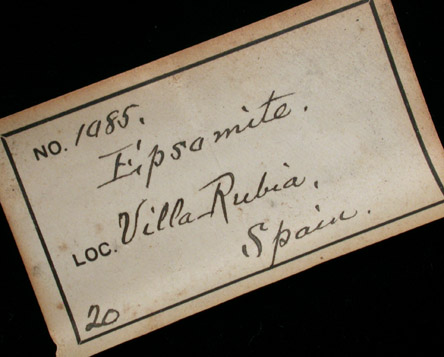 NO. 1985.
Epsomite.
LOC. Villa Rubia.
Spain.
20